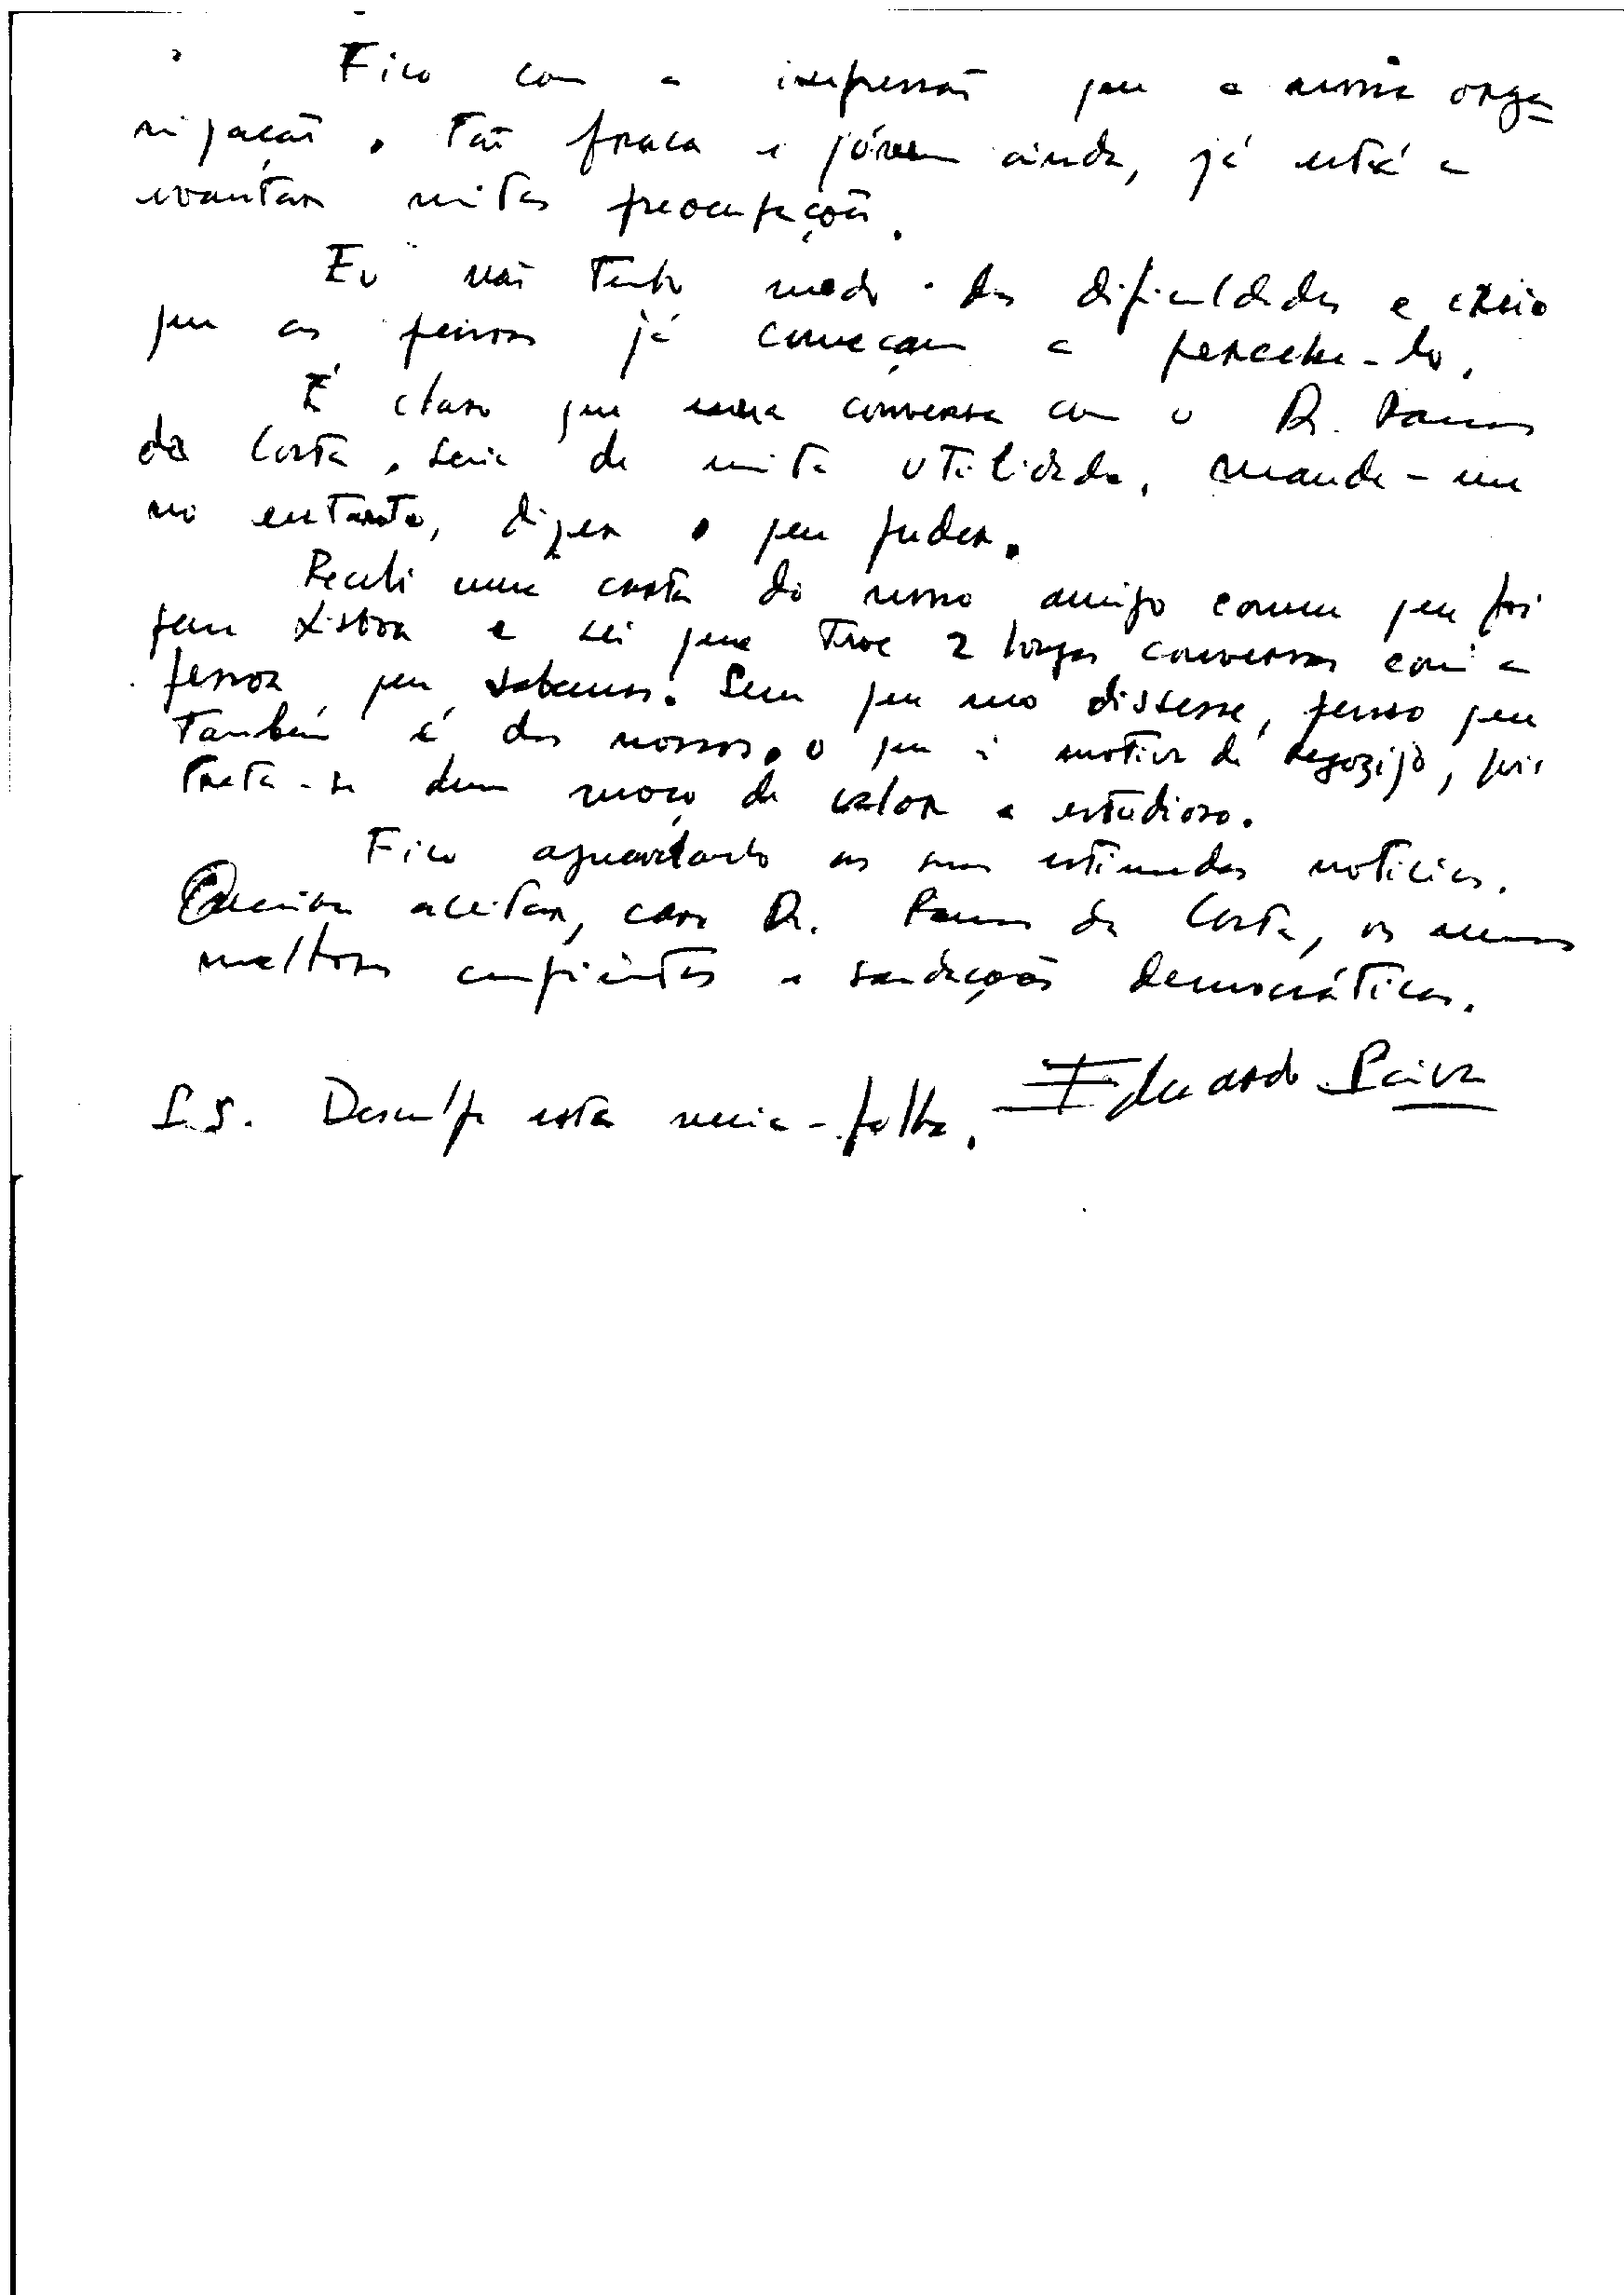 Fico com a impressão que a nossa orga
nização, tão fraca e jóvem ainda, já está a
levantar muitas preocupações.
Eu não tenho medo das dificuldades e creio
que as pessoas já começam a percebe-lo.
É claro que uma conversa com o Dr. Ramos
da Costa, seria de muita utilidade, mande-me
no entanto, dizer o que puder.
Recebi uma carta do nosso amigo comum que foi
para Lisboa e sei que teve 2 longas conversas com a
pessoa que sabemos. Sem que mo dissesse, penso que
também é dos nossos, o que é motivo de regozijo, pois
trata-se dum moço de valor e estudioso.
Fico aguardando as suas estimadas noticias.
Queira aceitar, caro Dr. Ramos da Costa, os meus
melhores cumprimentos e saudações democráticas.
Eduardo Paiva
P.S. Desculpe esta meia-folha.